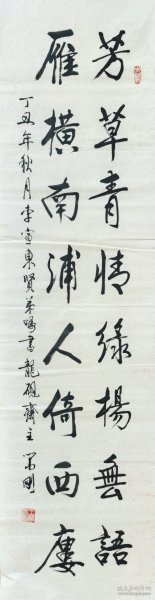 芳草青情綠楊無語
雁橫南浦人倚西廔
丁丑年秋月李宝東賢弟嘱書龍硯齋主